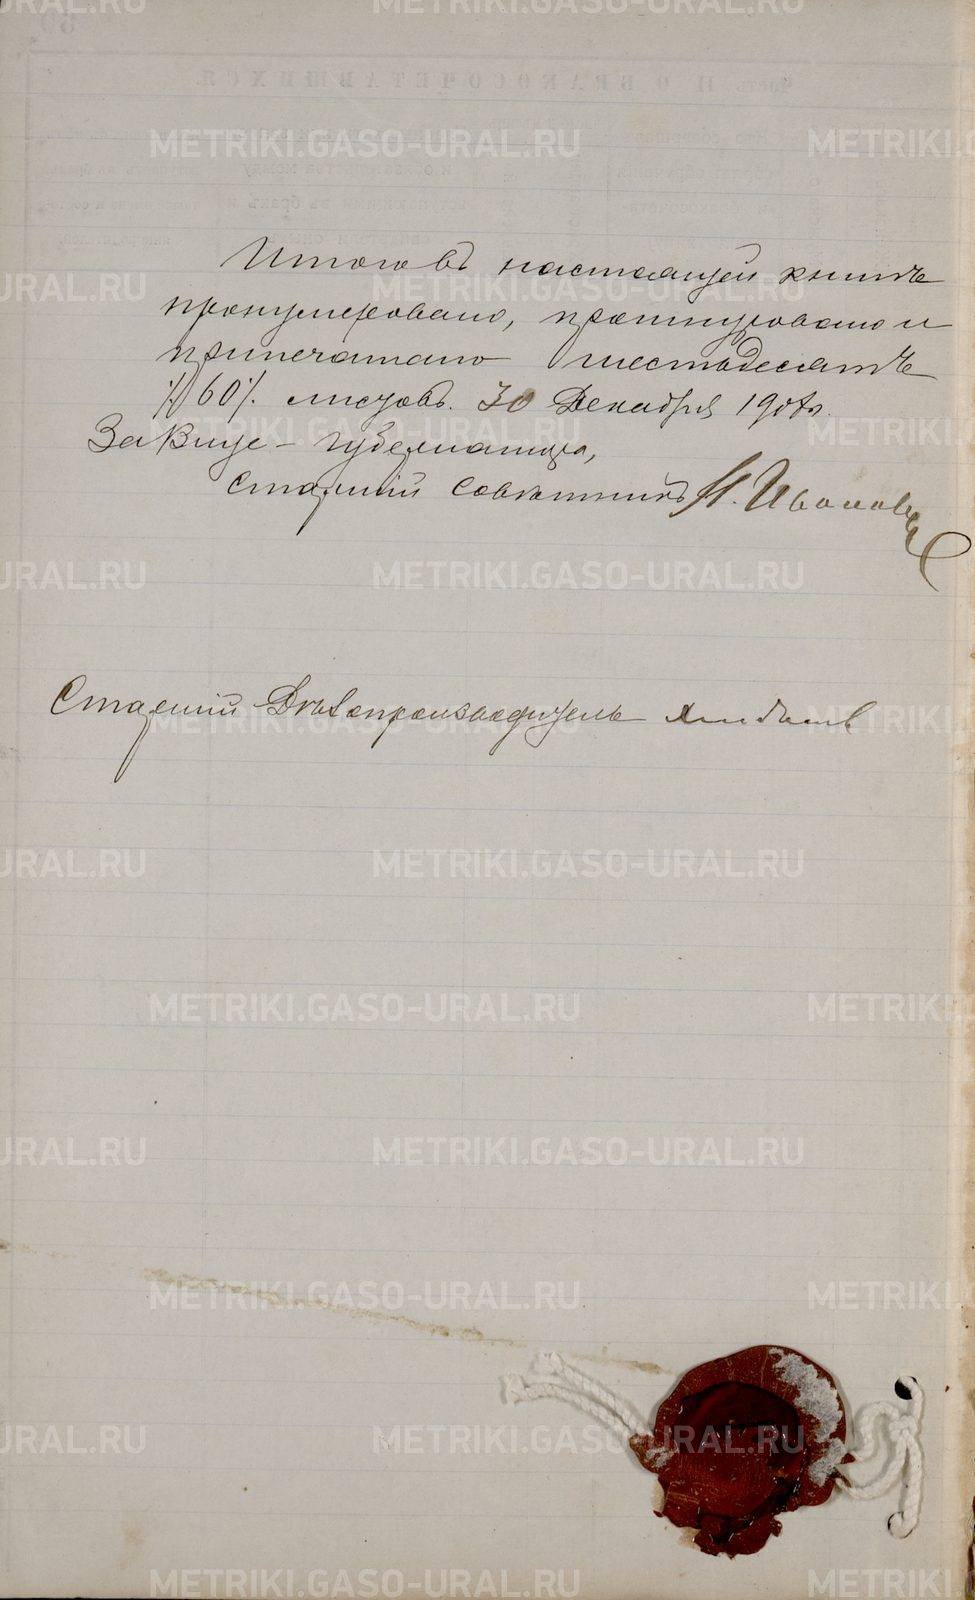 Итого въ настоящей книгѣ
пронумеровано, прошнуровано и
припечатано шестьдесятъ
% 60 % листовъ. 30 Декабря 190 г.
За Вице-губернатора,
Старшій Совѣтникъ Н. Ивановъ
Старшій Дѣлопроизводитель
METRIKI.GASO-URAL.RU